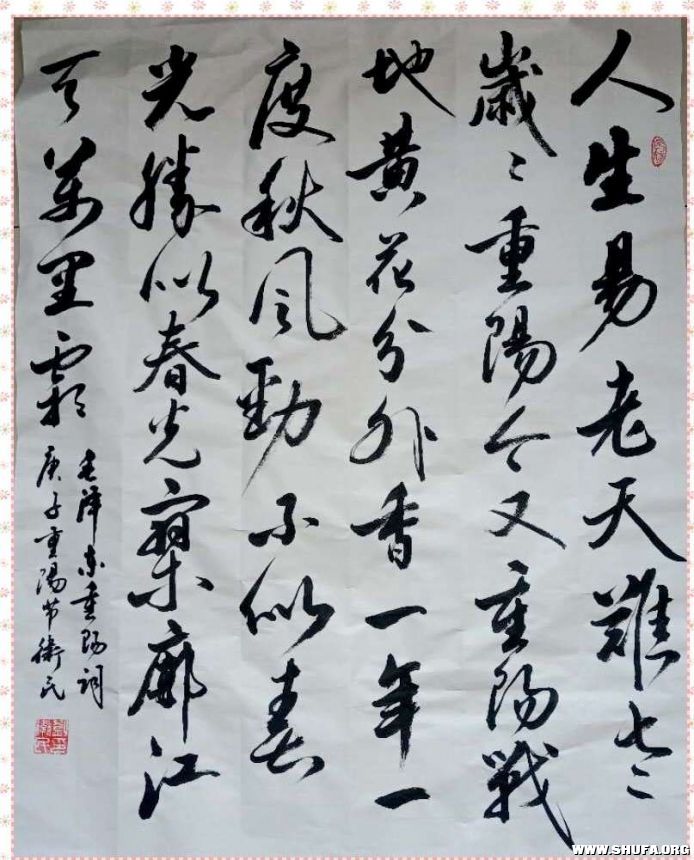 人生易老天難老
歲〻重陽今又重陽戰
地黄花分外香一年一
度秋風勁不似春
光勝似春光寥廓江
天萬里霜
毛澤東重陽詞
庚子重陽节衛民
WWW.SHUFA.ORG